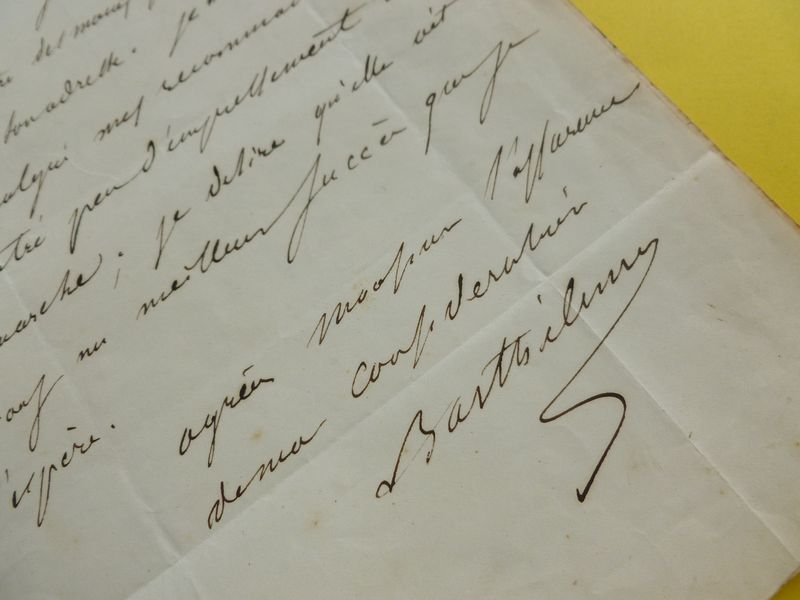 des manuf
son adresse. Je
mes recomman
peu d'empressement
marche ; je desire qu'elle ait
un meilleur succès que je
espère.
agréer Monsieur l'assurance
de ma considération
Barthélemy